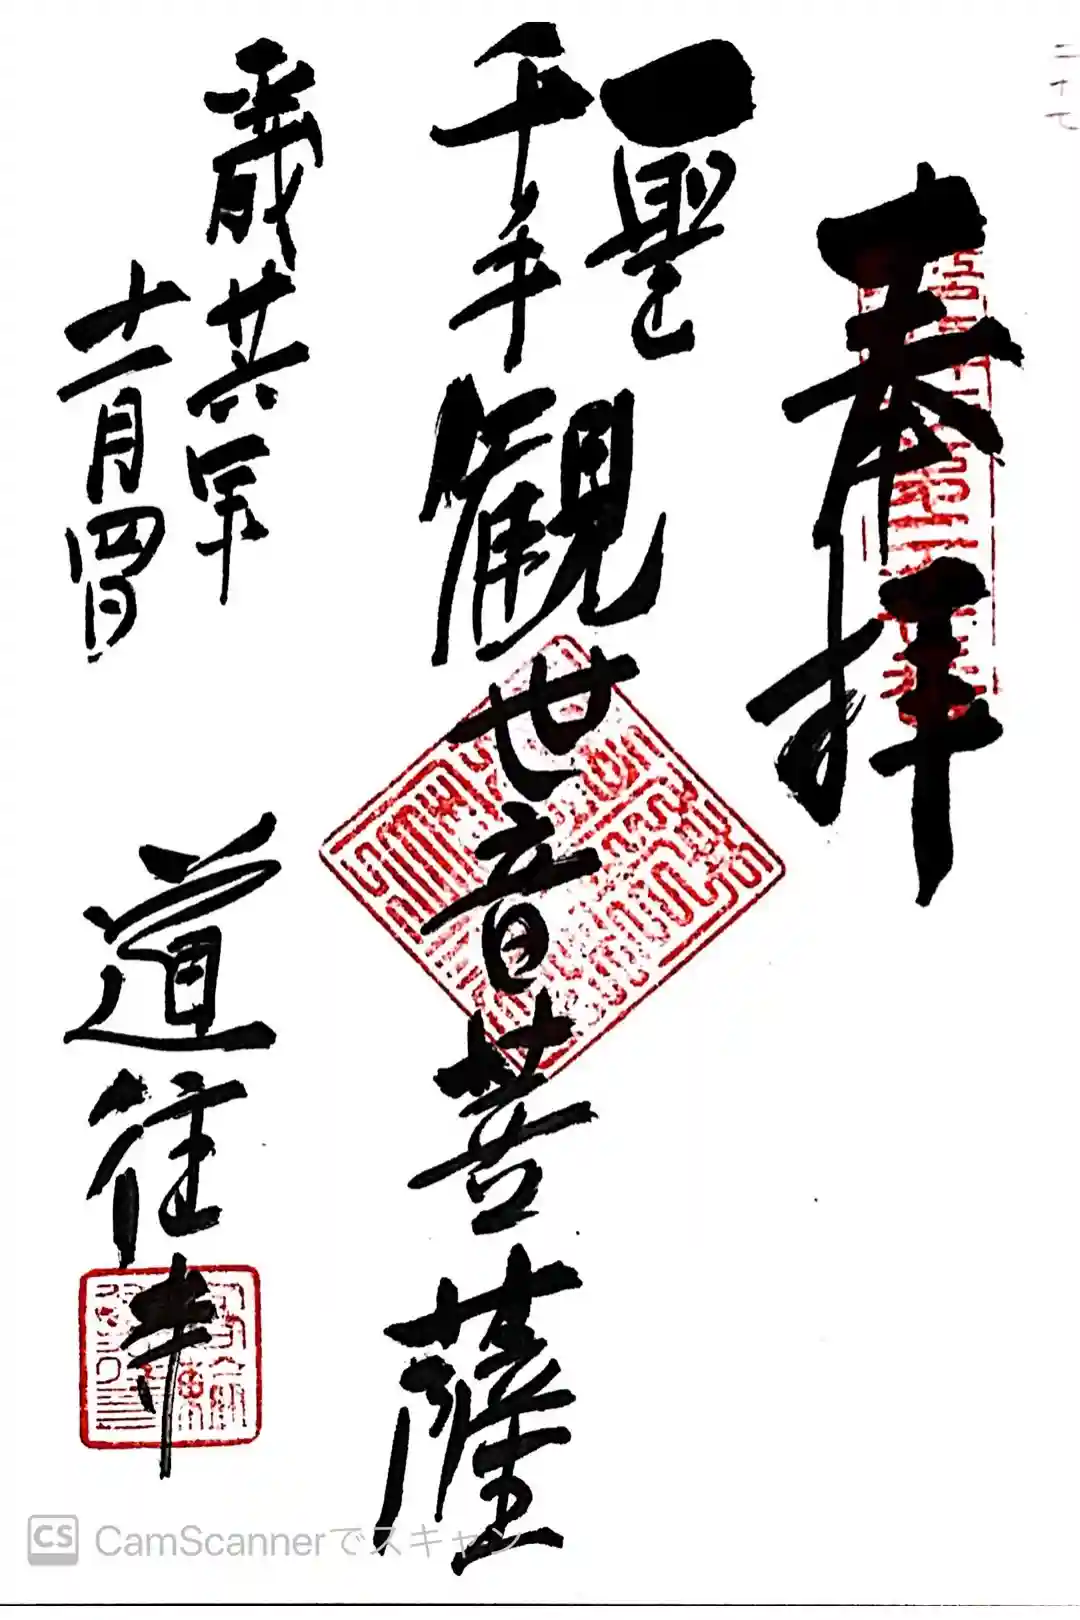 二十七
奉拝
一聖
千手観世音菩薩
平成廿六年
十一月四日
道往寺
CS CamScannerでスキャン